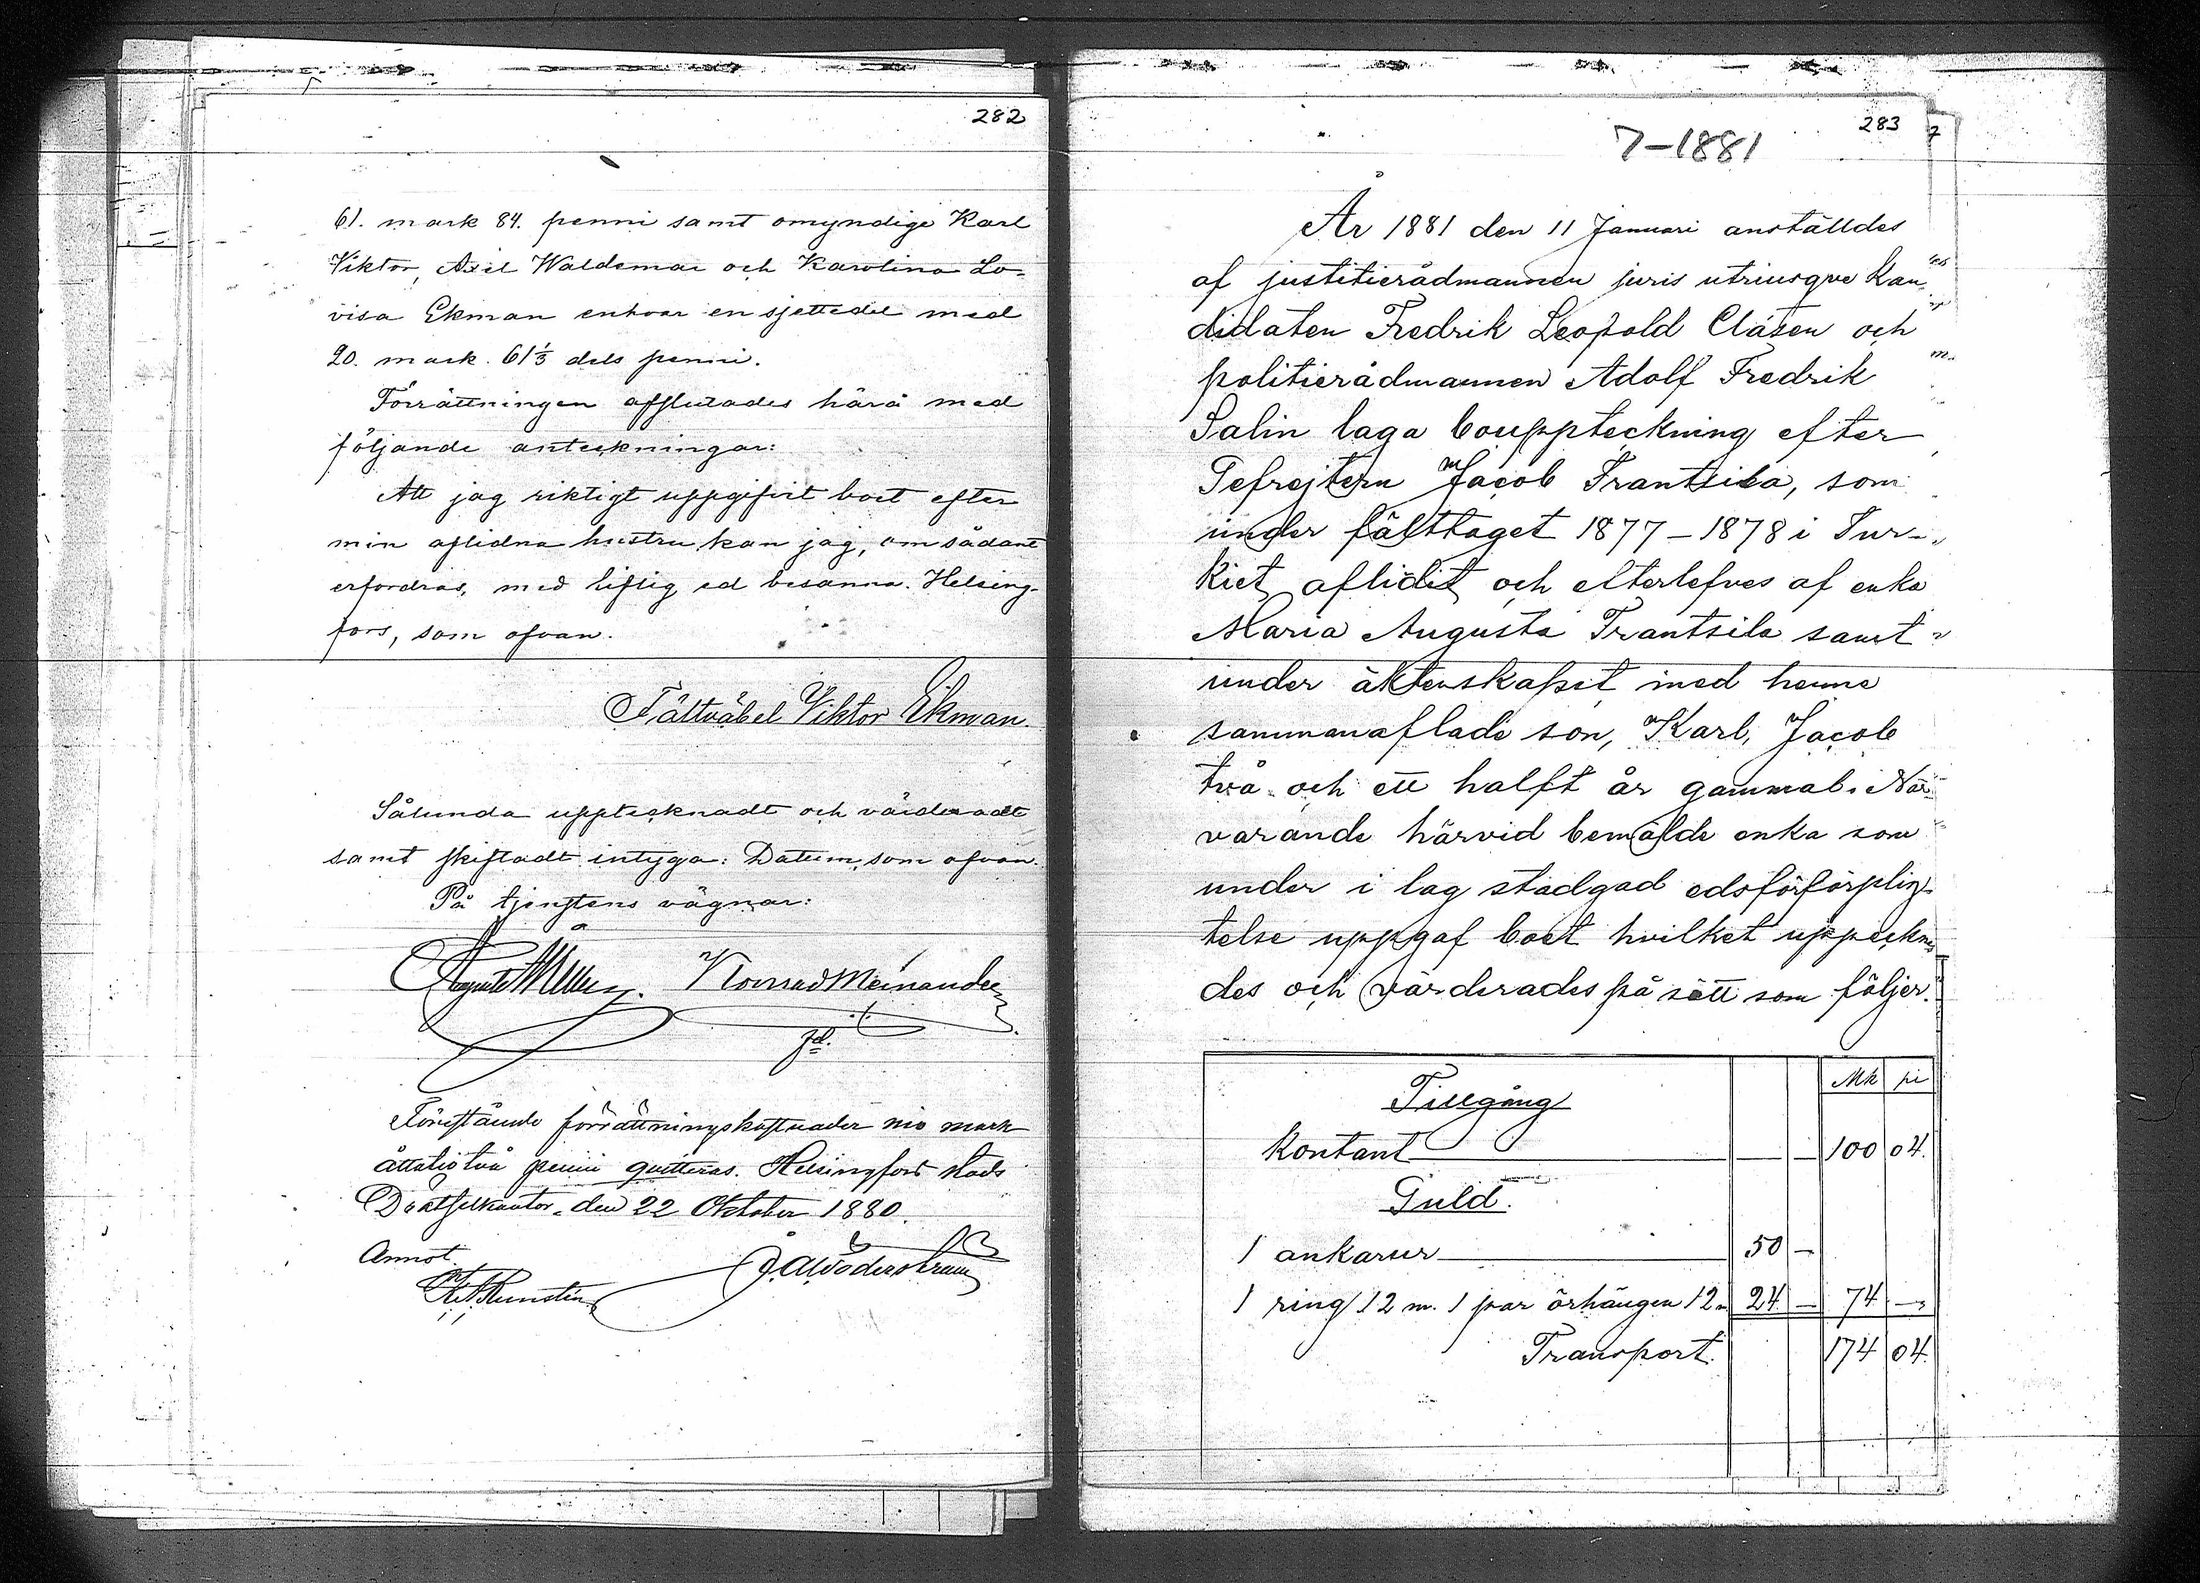 282
61. mark 84. penni samt omyndige Karl
Viktor, Axel Waldemar och Karolina Lo-
visa Ekman enhvar en sjettedel med
20. mark. 61 1/3 dels penni.
Förrättningen afslutades härå med
följande anteckningar:
Att jag riktigt uppgifvit boet efter
min aflidna hustru kan jag, om sådant
erfordras, med liflig ed besanna. Helsing-
fors, som ofvan.
Fältväbel Viktor Ekman.
Sålunda upptecknadt och värderadt
samt skiftadt intyga: Datum, som ofvan.
På tjenstens vägnar:
Konrad Meinander
Förestående förrättningskostnader nio mark
åttatiotvå penni qvitteras. Helsingfors stads
Drätselkontor, den 22 Oktober 1880.
Annot.
283
7
7-1881
År 1881 den 11 Januari anställdes
af justitierådmannen juris utriusque Kan-
didaten Fredrik Leopold Clásen och
politierådmannen Adolf Fredrik
Salin laga bouppteckning efter
Gefrejtern Jacob Frantsila, som
under fälttåget 1877-1878 i Tur-
kiet aflidit och efterlefves af enka
Maria Augusta Frantsila samt
under äktenskapet med henne
sammanaflade son, Karl, Jacob
två och ett halft år gammal. När-
varande härvid bemälde enka som
under i lag stadgad edsförförplig-
telse uppgaf boet hvilket uppteckna-
des och värderades på sätt som följer.
Mk pi
Tillgång
Kontant — — — 100 04.
Guld.
1 ankarur — 50 —
1 ring 12 m. 1 par örhängen 12 24 — 74 —
Transport. 174 04.